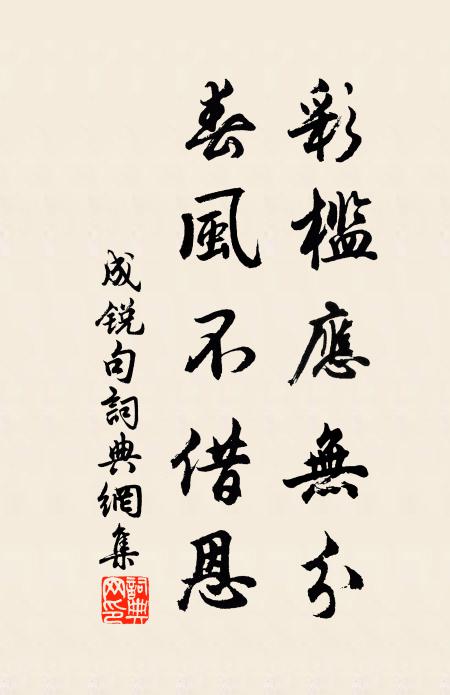 彩檻應無分
春風不借恩
成銳句詞典網集
詞典网印